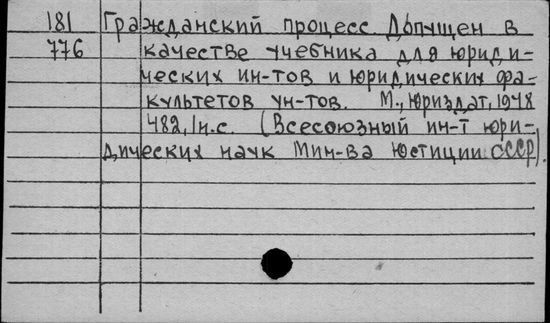 181 Гражданский процесс. Допущен в
776 качестве учебника для юриди-
ческих ин-тов и юридических фа-
культетов ун-тов. М., Юриздат, 1948
482, 1н.с. (Всесоюзный ин-т юри-
дических наук Мин-ва Юстиции СССР).